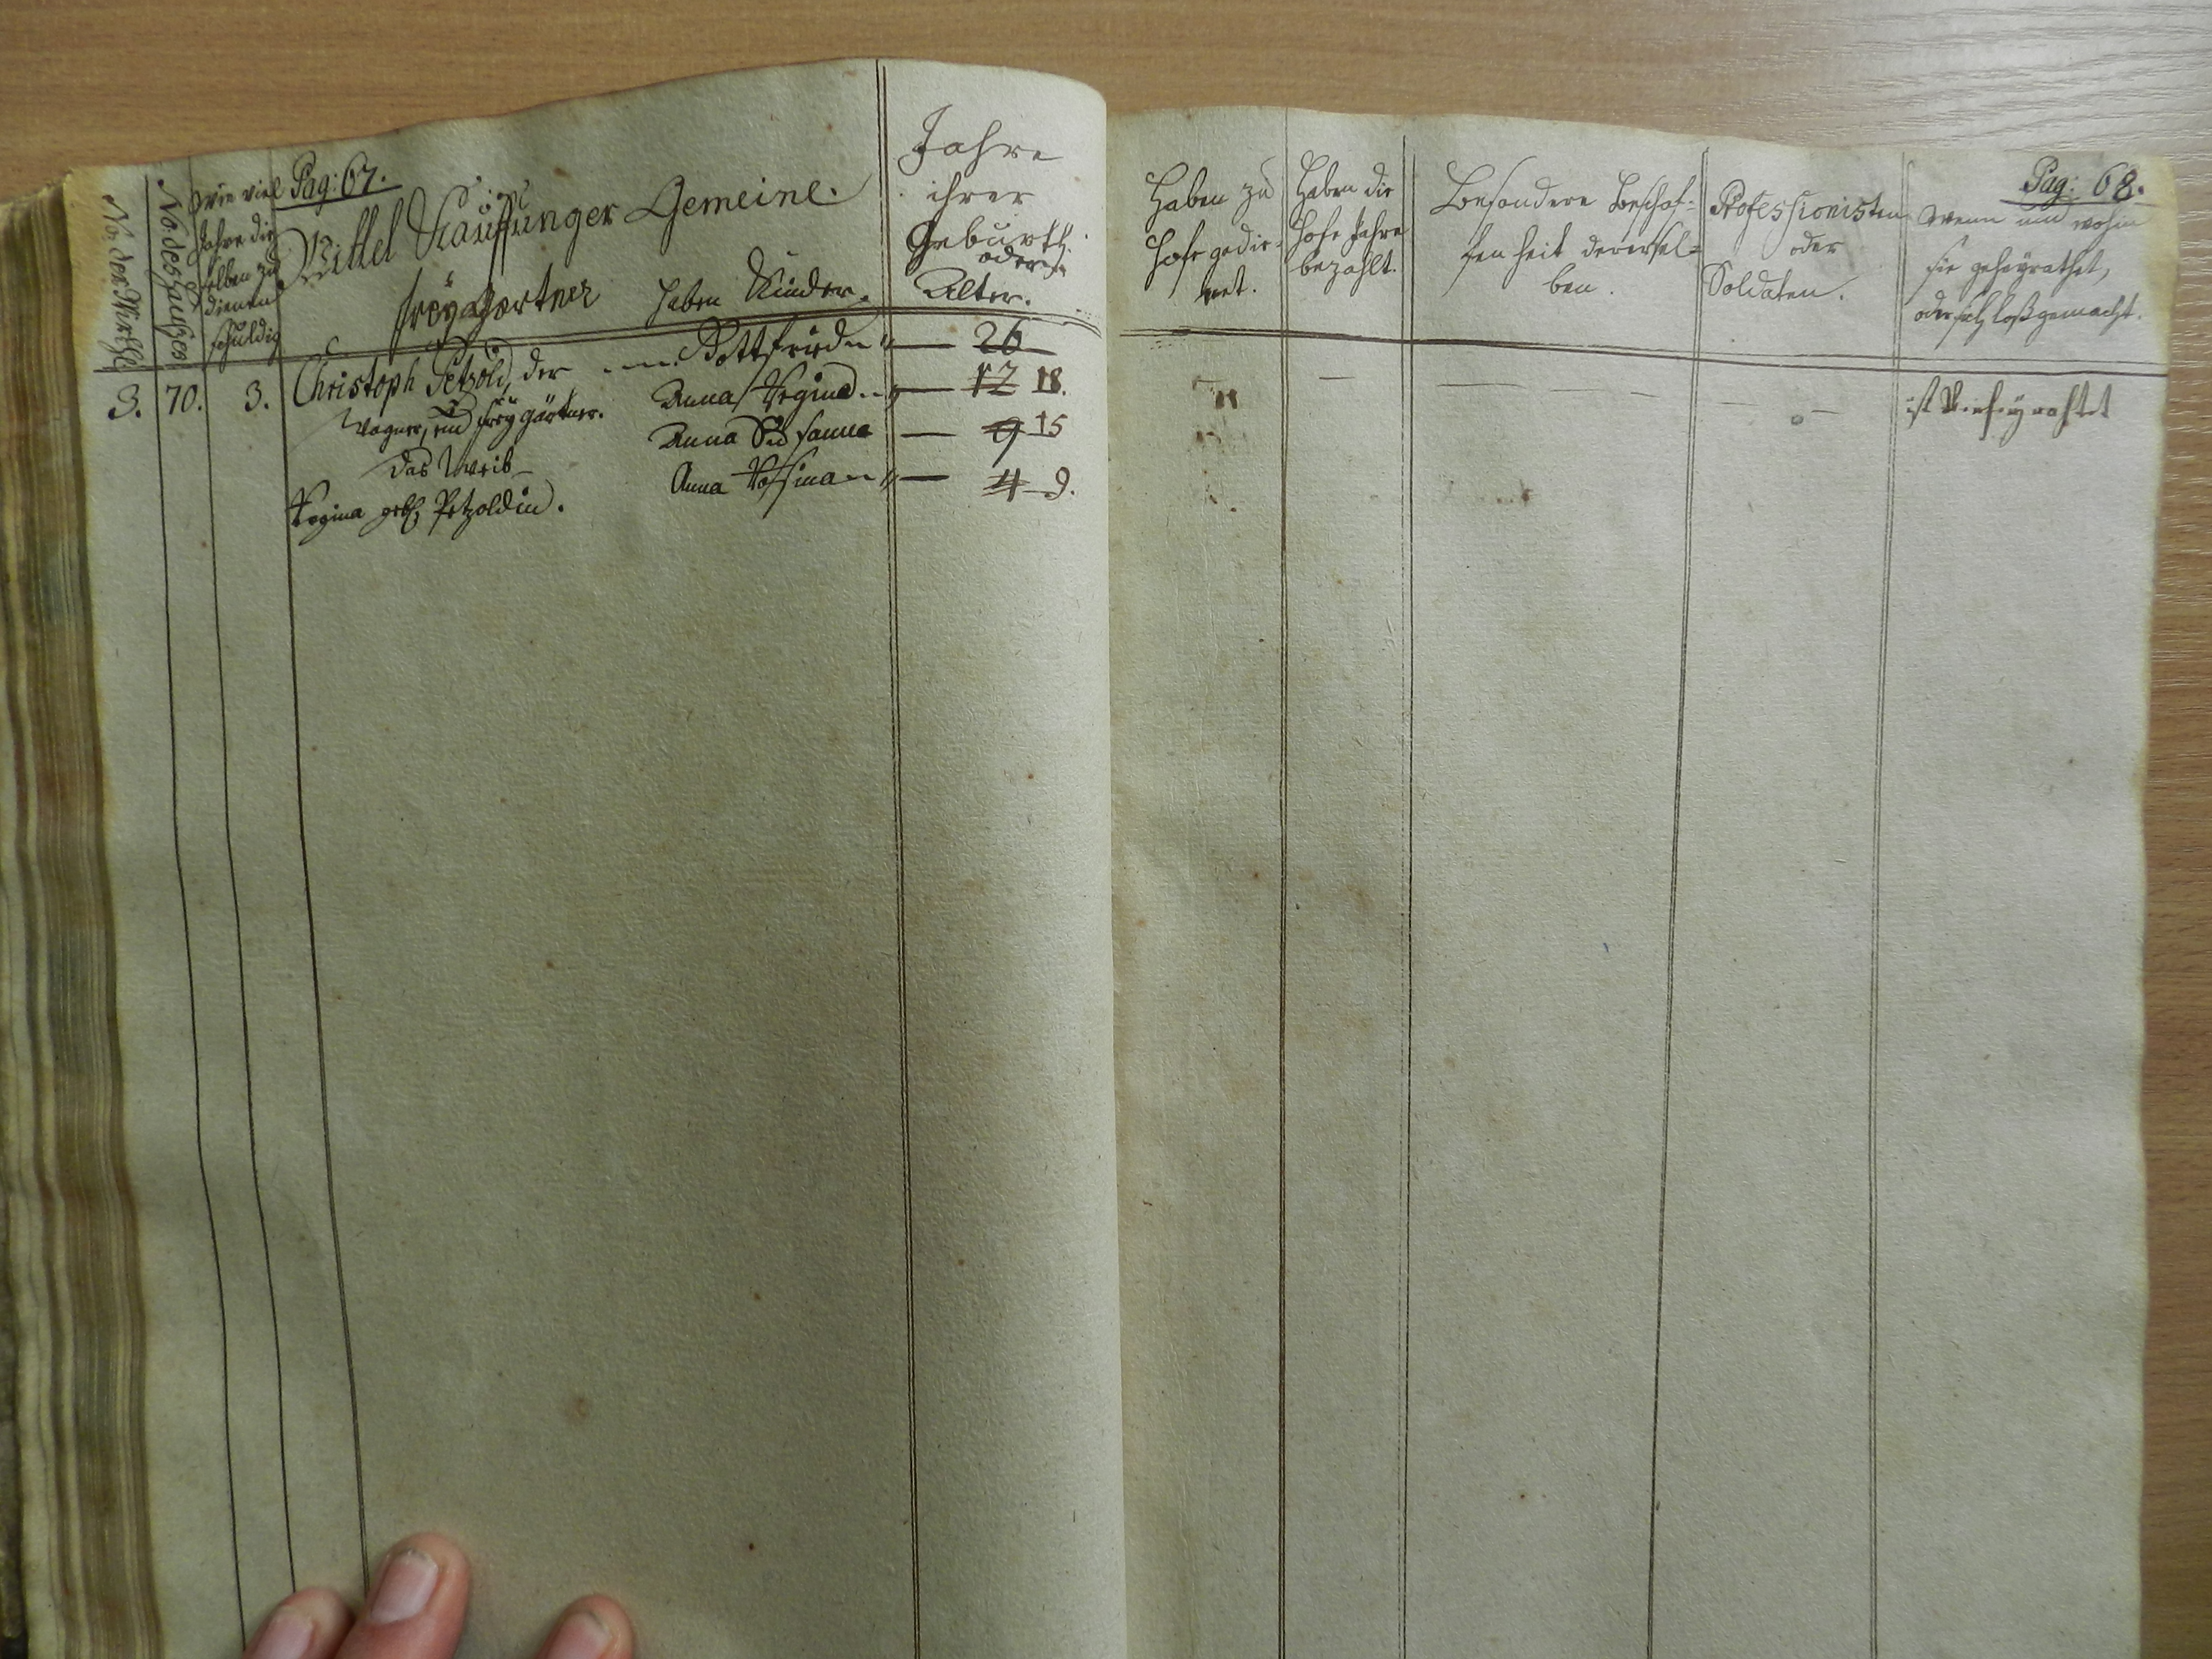 Pag: 67.
No. der Wirthe
No. des Hauses
Wie viel
Jahre die
selben zu
dienen
schuldig
Mittel Kauffunger Gemeine.
Freygærtner haben Kinder.
Jahre
ihrer
Geburth.
oder
Alter.
3. 70. 3. Christoph Petzold, der Gottfried 26
Wagner, ein freygärtner. Anna Regina 12 18.
Anna Susanna 9 15
das Weib Anna Rosina 4 9.
Regina geb. Petzoldin.
Pag: 68.
Haben zu
Hofe gedie-
net.
Haben die
Hofe Jahre
bezahlt.
Besondere Beschaf-
fenheit derersel-
ben.
Professionisten
oder
Soldaten.
Wenn und wohin
sie geheyrathet,
oder sich loßgemacht.
ist verheyrathet